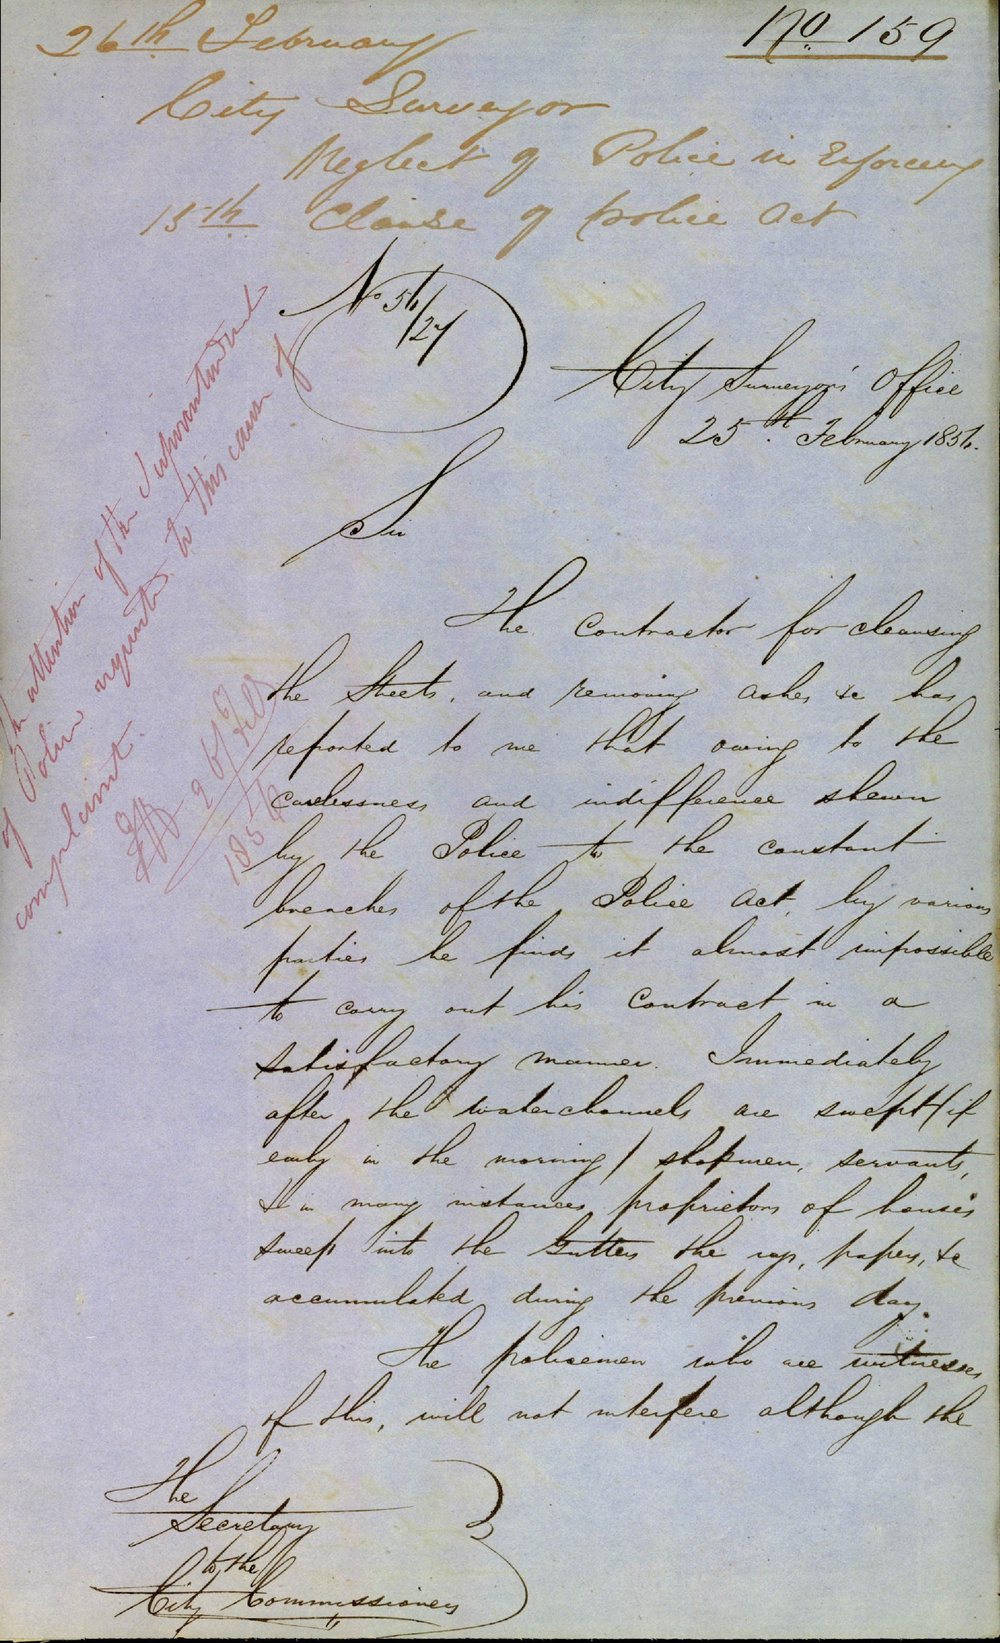 26th February
No 159
City Surveyor
Neglect of Police in Enforcing
15th Clause of police Act
No 56/27
City Surveyor's Office
25th February 1856.
Sir
The Contractor for cleansing
the Streets, and removing ashes &c has
reported to me that owing to the
carelessness and indifference shewn
by the Police to the constant
breaches of the Police Act, by various
parties he finds it almost impossible
to carry out his Contract in a
satisfactory manner. Immediately
after the waterchannels are swept (if
early in the morning) shopmen, servants,
& in many instances proprietors of houses
sweep into the Gutters the rags, papers, &c
accumulated during the previous day.
The policemen who are witnesses
of this, will not interfere although the
The
Secretary
to the
City Commissioners
The attention of the Superintendent
of Police requested to this cause of
complaint.
1856